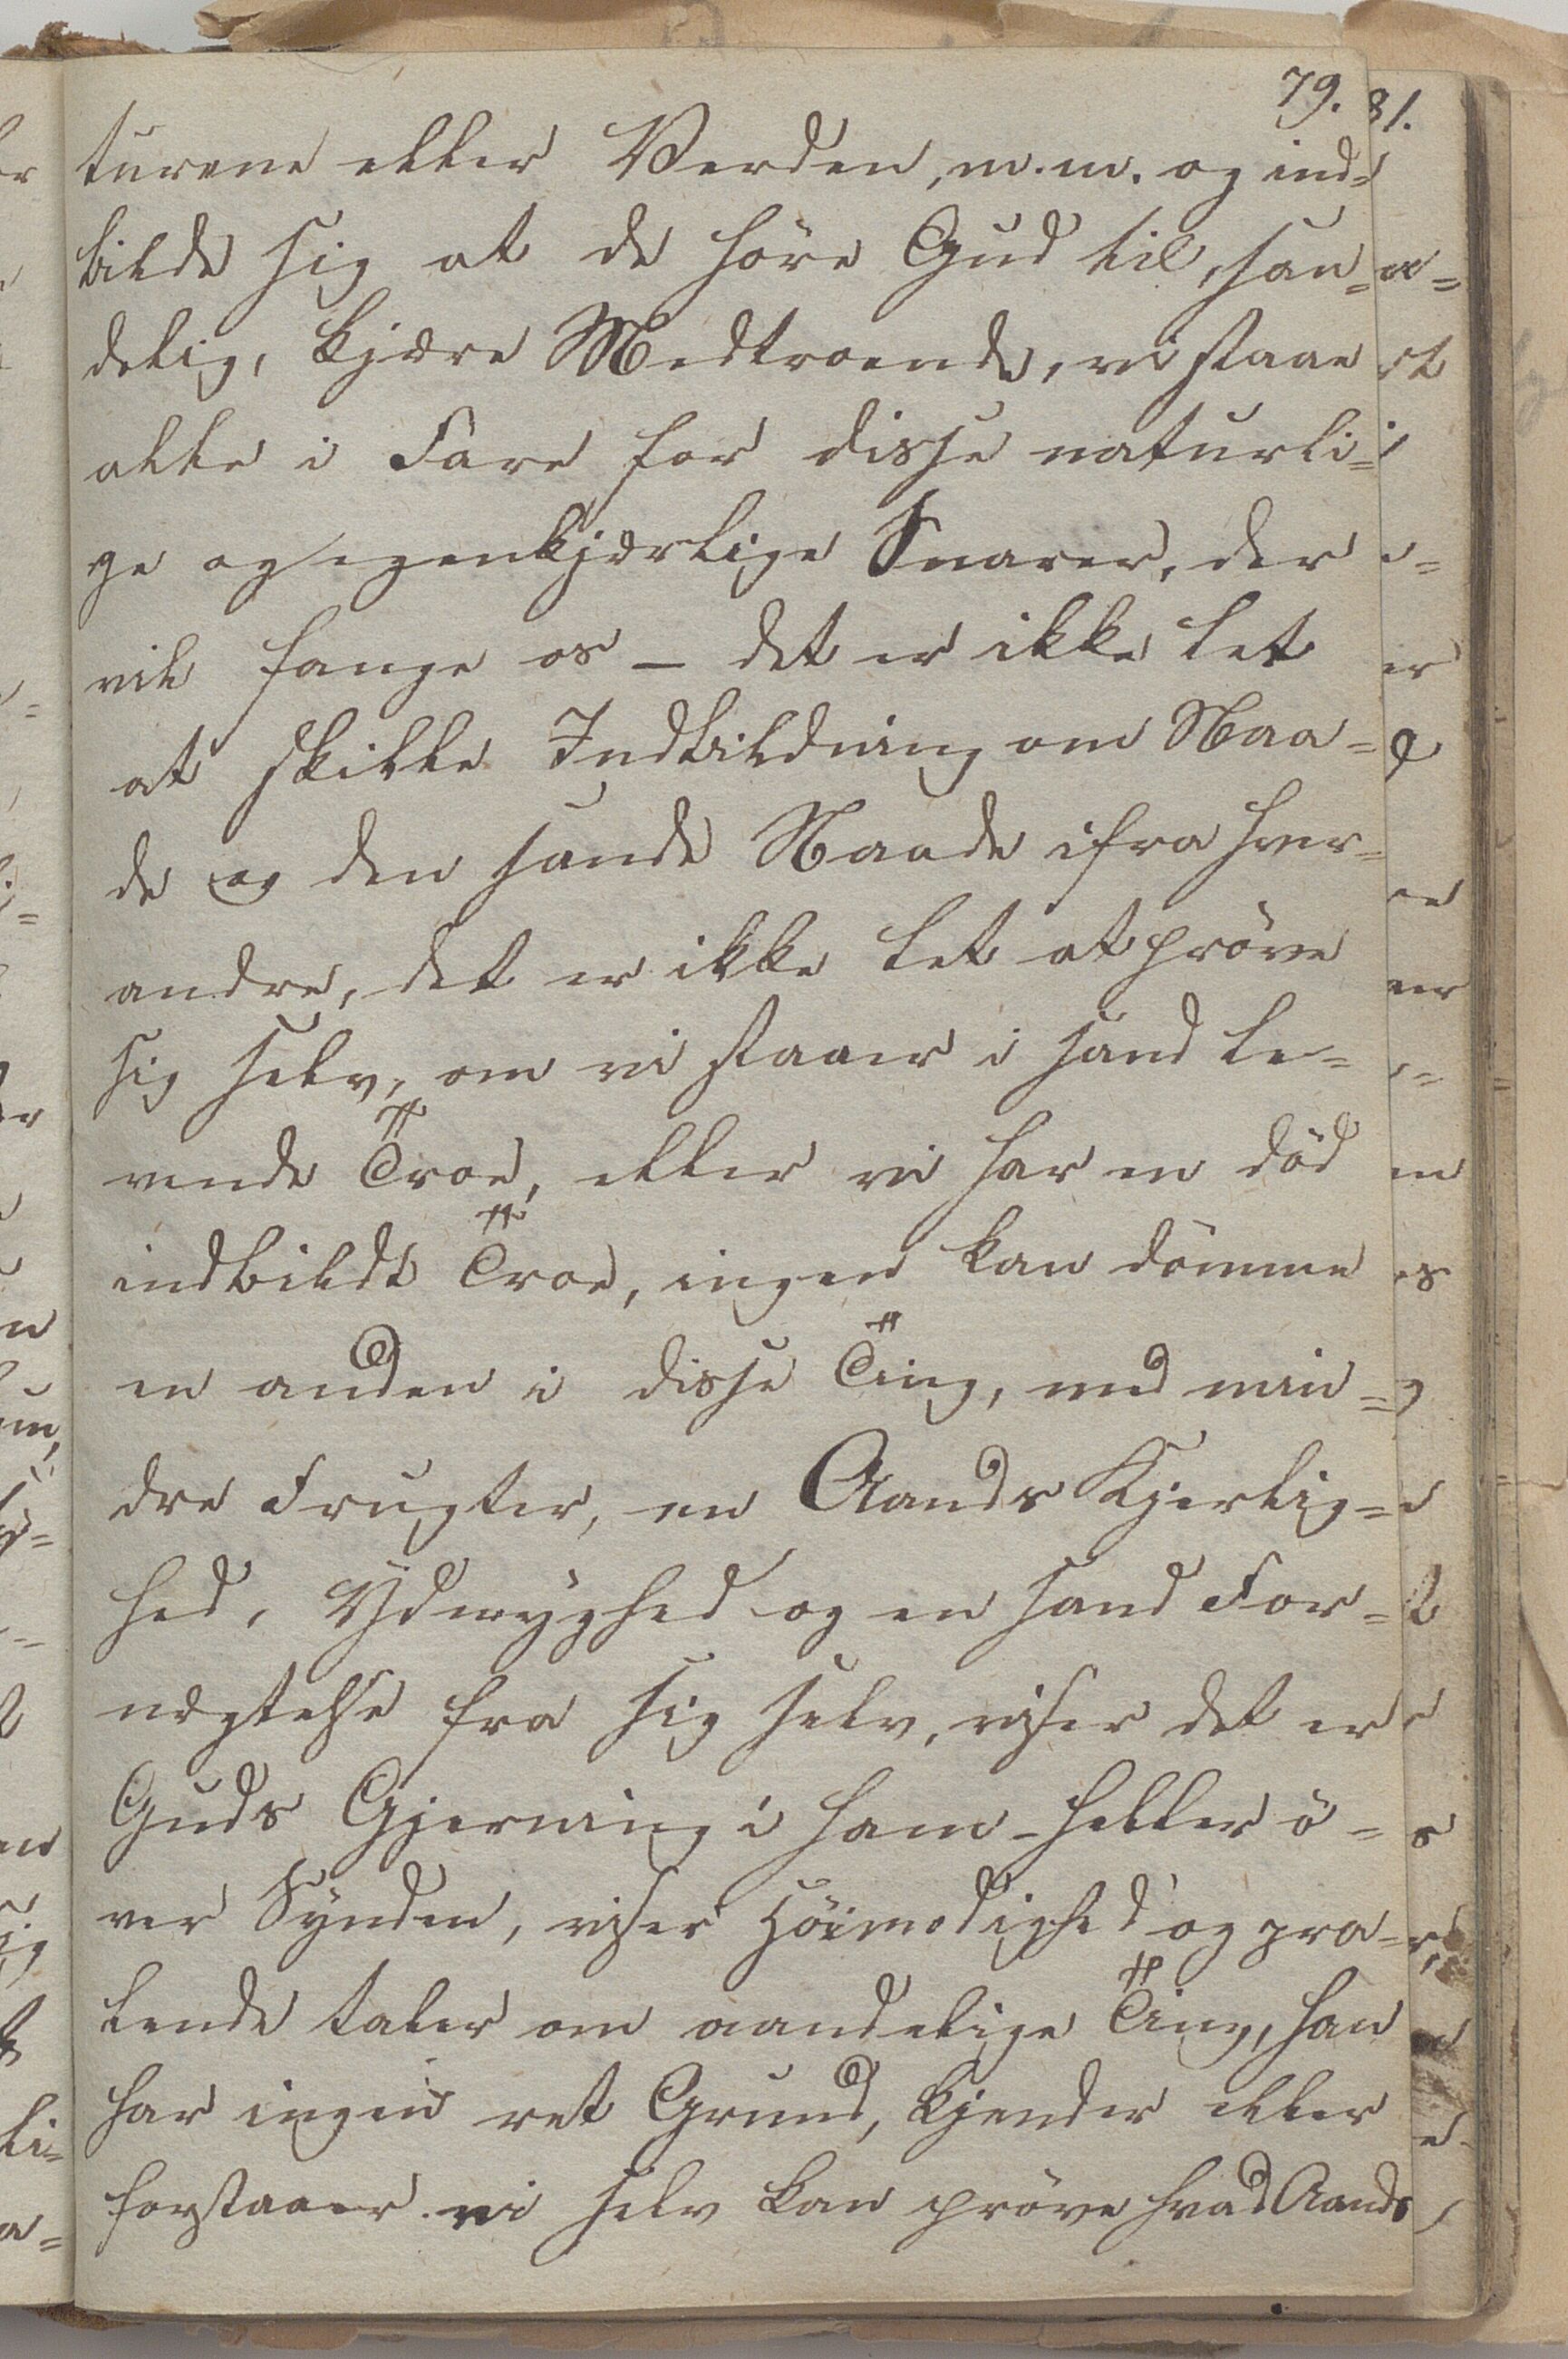 79.
turene eller Verden, m.m. og ind=
bilde sig at de höre Gud til, san=
delig, kjære Medtroende, vi staae
alle i Fare for disse naturli=
ge og egenkjærlige Snarer, der
vil fange os - det er ikke let
at skille Indbildning om Naa=
de og den sande Naade ifra hver=
andre, det er ikke let at pröve
sig selv, om vi staaer i sand le=
vende Troe, eller vi har en död
indbildt Troe, ingen kan dömme
en anden i disse Ting, med min=
dre Frugter, en Aands Kjerlig=
hed, Ydmyghed og en sand For=
nægtelse fra sig selv, viser det er
Guds Gjerning i ham - heller ö=
ver Synden, viser Höimodighed og pra=
lende taler om aandelige Ting, han
har ingen ret Grund, kjender eller
forstaaer. vi selv kan pröve hvad Aands
81.